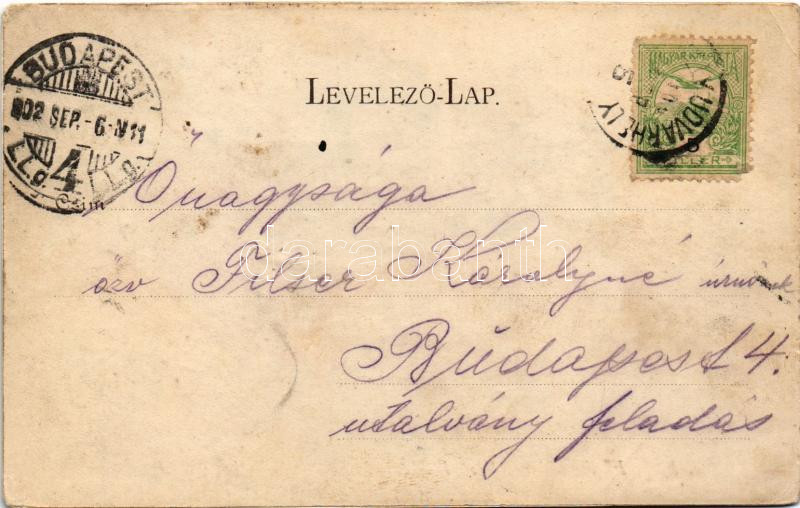 BUDAPEST
902 SEP.-6.-N11
4
LEVELEZŐ-LAP.
MAGYAR
UDVARHELY
Czim
Önagysága
özv Filser Károlyné úrnőnek
Budapest 4.
utalvány feladás
darabanth